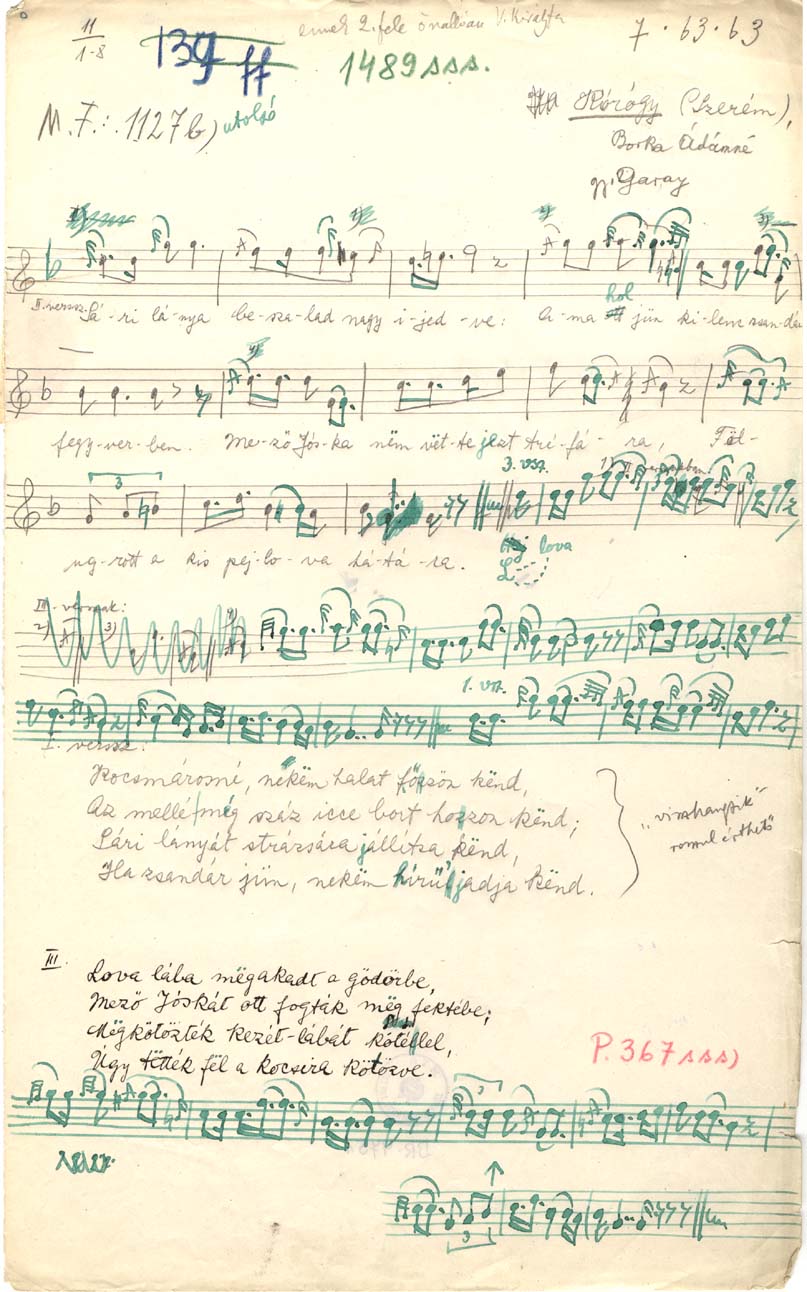 11
1-8
139 ff
ennek 2. fele önállóan V. Királyfa
7 · 63 · 63
1489 sss.
M. F.: 1127 b) utolsó
Kórógy (Szerém),
Borka Ádámné
gy. Garay
II. verssz. Sá-ri lá-nya be-sza-lad nagy i-jed-ve: A-ma hol jün ki-lenc zsan-dár
fegy-ver-ben. Me-ző Jós-ka nëm vët-te jezt tré-fá-ra, Fël-
3. vsz.
ug-rott a kis pej-lo-va há-tá-ra.
lova
III. versnek:
2) 3)
1. vsz.
I. versz:
Kocsmárosné, nekëm halat főzzön kënd,
Az mellé még száz icce bort hozzon kënd;
Sári lányát strázsára jállítsa kënd,
Ha zsandár jün, nekëm hírül jadja kënd.
"visszhangzik"
rosszul érthető
III.
Lova lába mëgakadt a gödörbe,
Mező Jóskát ott fogták mëg fektébe;
Mëgkötözték kezét-lábát kötéllel,
Úgy tëtték fël a kocsira kötözve.
P. 367 sss)
3
3